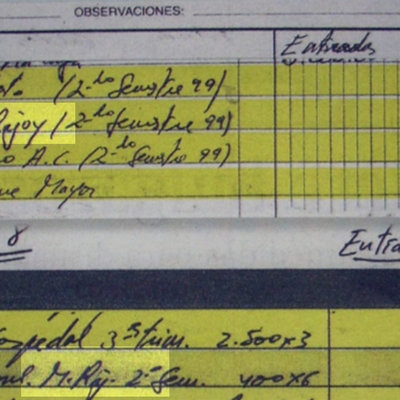 OBSERVACIONES:
Entradas
(2-do Semestre 99)
Rajoy (2-do Semestre 99)
A.C. (2-do Semestre 99)
Mayor
8
3er trim. 2.500x3
M. Raj. 2º Sem. 400x6